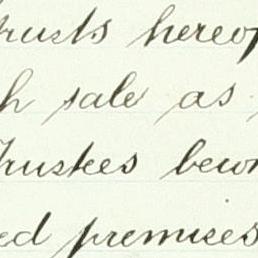 trusts hereof
h sale as
Trustees bew
ed premises